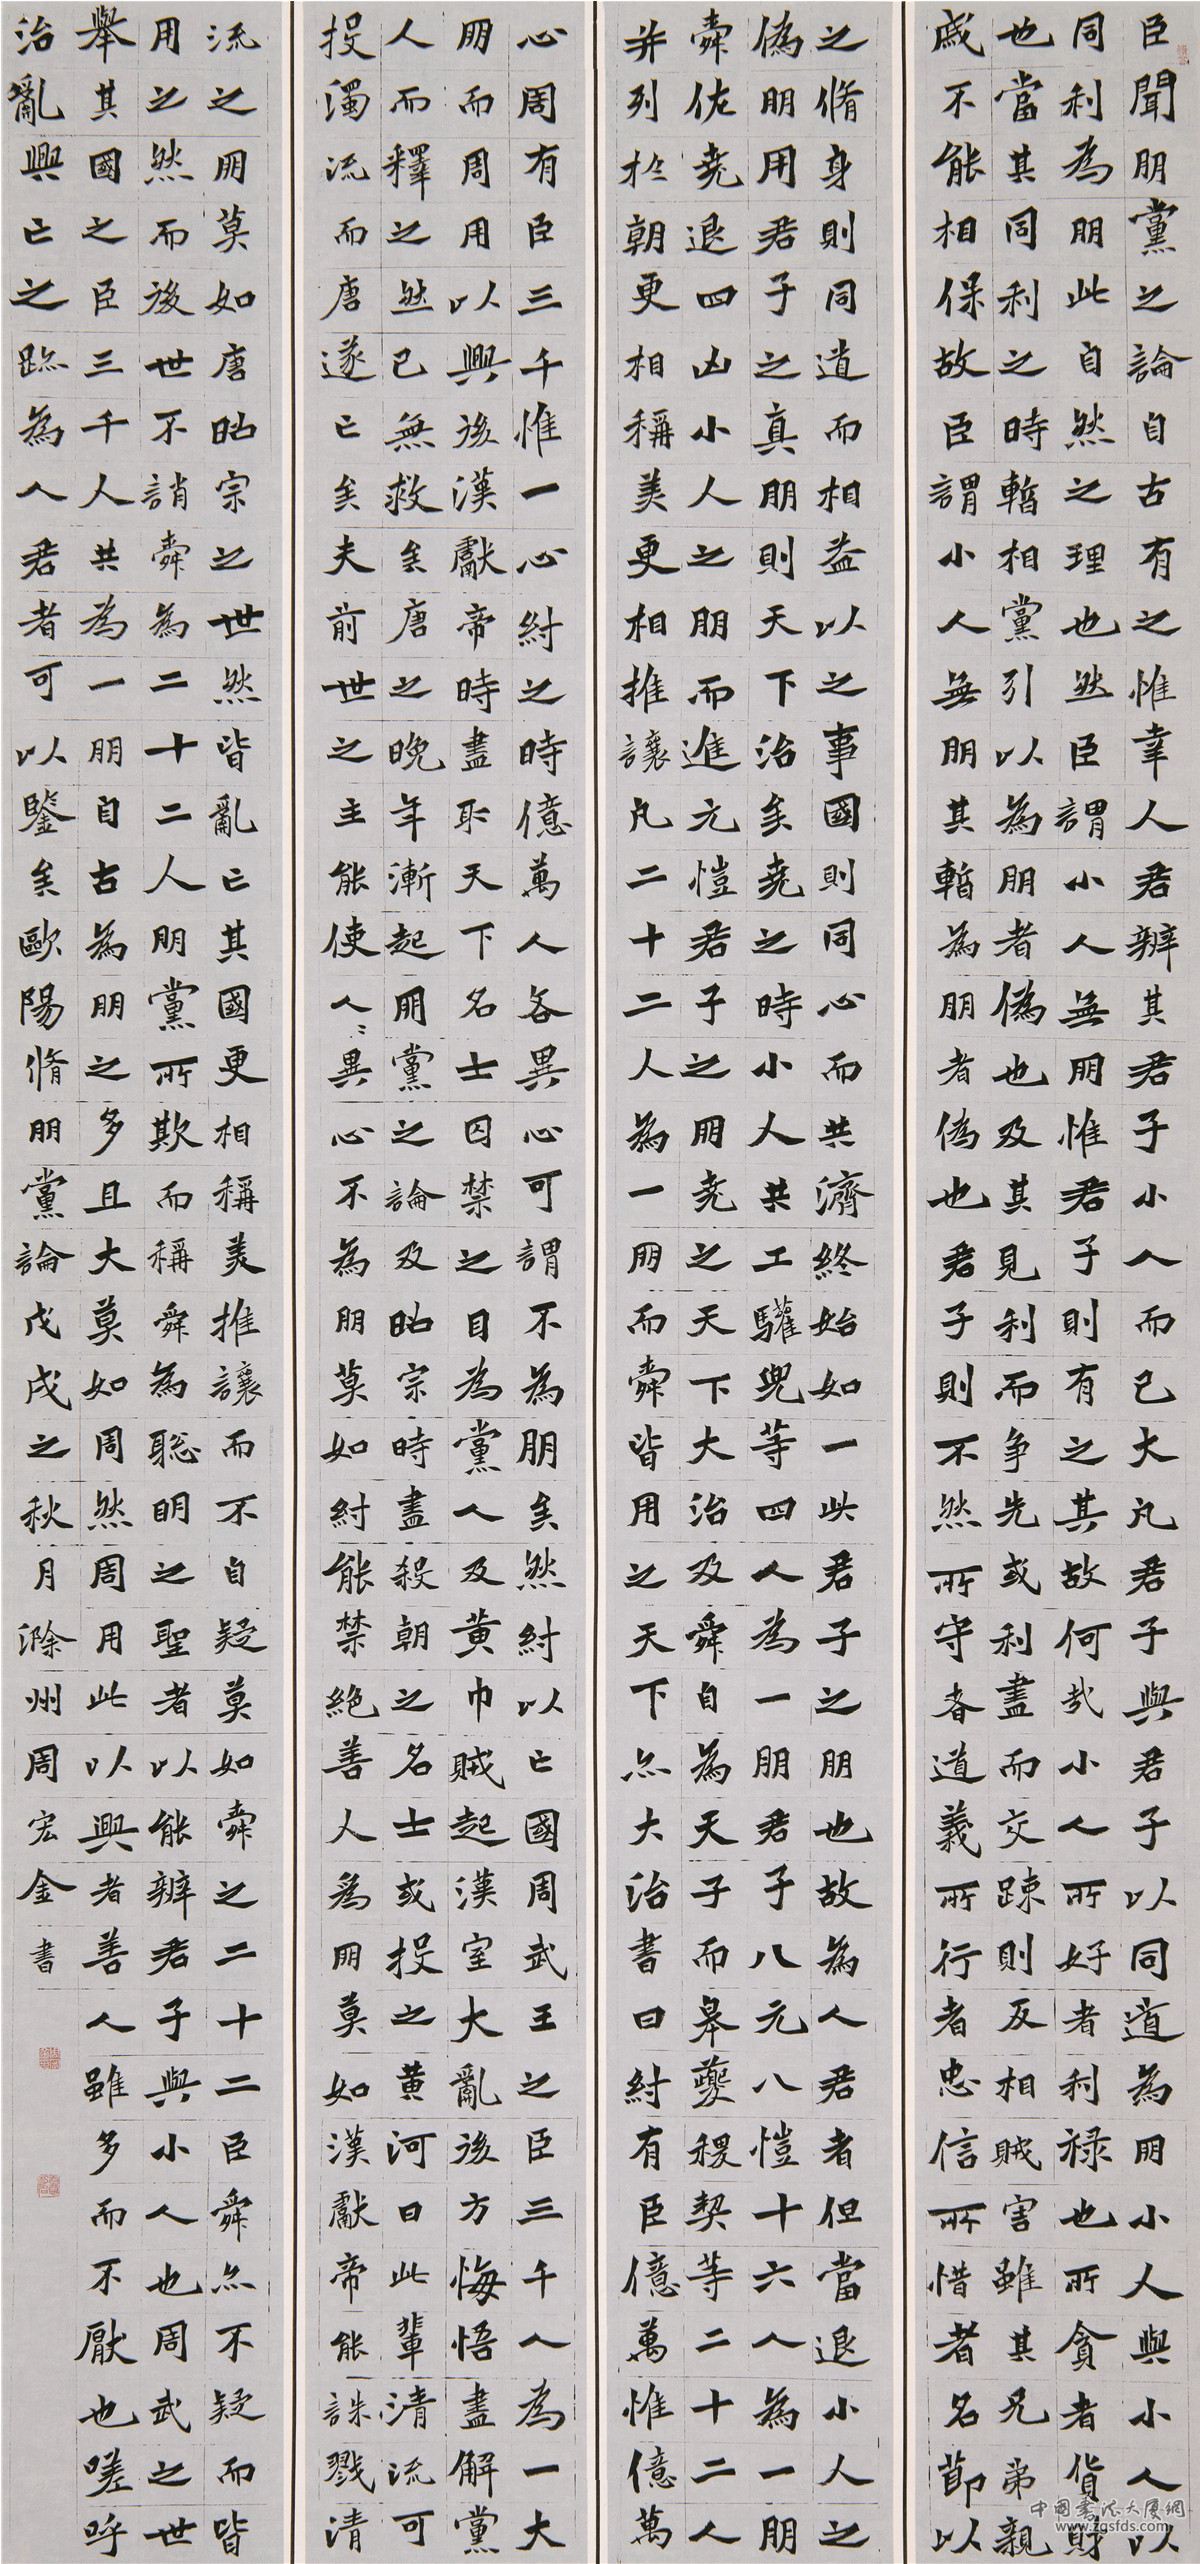 臣聞朋黨之論自古有之惟幸人君辨其君子小人而已大凡君子與君子以同道為朋小人與小人以
同利為朋此自然之理也然臣謂小人無朋惟君子則有之其故何哉小人所好者利祿也所貪者貨財
也當其同利之時暫相黨引以為朋者偽也及其見利而爭先或利盡而交踈則反相賊害雖其兄弟親
戚不能相保故臣謂小人無朋其暫為朋者偽也君子則不然所守者道義所行者忠信所惜者名節以
之脩身則同道而相益以之事國則同心而共濟終始如一此君子之朋也故為人君者但當退小人之
偽朋用君子之真朋則天下治矣堯之時小人共工驩兜等四人為一朋君子八元八愷十六人為一朋
舜佐堯退四凶小人之朋而進元愷君子之朋堯之天下大治及舜自為天子而皋夔稷契等二十二人
并列於朝更相稱美更相推讓凡二十二人為一朋而舜皆用之天下亦大治書曰紂有臣億萬惟億萬
心周有臣三千惟一心紂之時億萬人各異心可謂不為朋矣然紂以亡國周武王之臣三千人為一大
朋而周用以興後漢獻帝時盡取天下名士囚禁之目為黨人及黃巾賊起漢室大亂後方悔悟盡解黨
人而釋之然已無救矣唐之晚年漸起朋黨之論及昭宗時盡殺朝之名士或投之黃河曰此輩清流可
投濁流而唐遂亡矣夫前世之主能使人々異心不為朋莫如紂能禁絕善人為朋莫如漢獻帝能誅戮清
流之朋莫如唐昭宗之世然皆亂亡其國更相稱美推讓而不自疑莫如舜之二十二臣舜亦不疑而皆
用之然而後世不誚舜為二十二人朋黨所欺而稱舜為聰明之聖者以能辨君子與小人也周武之世
舉其國之臣三千人共為一朋自古為朋之多且大莫如周然周用此以興者善人雖多而不厭也嗟呼
治亂興亡之跡為人君者可以鑒矣歐陽脩朋黨論戊戌之秋月滁州周宏金書
中国书法大厦網
www.zgsfds.com